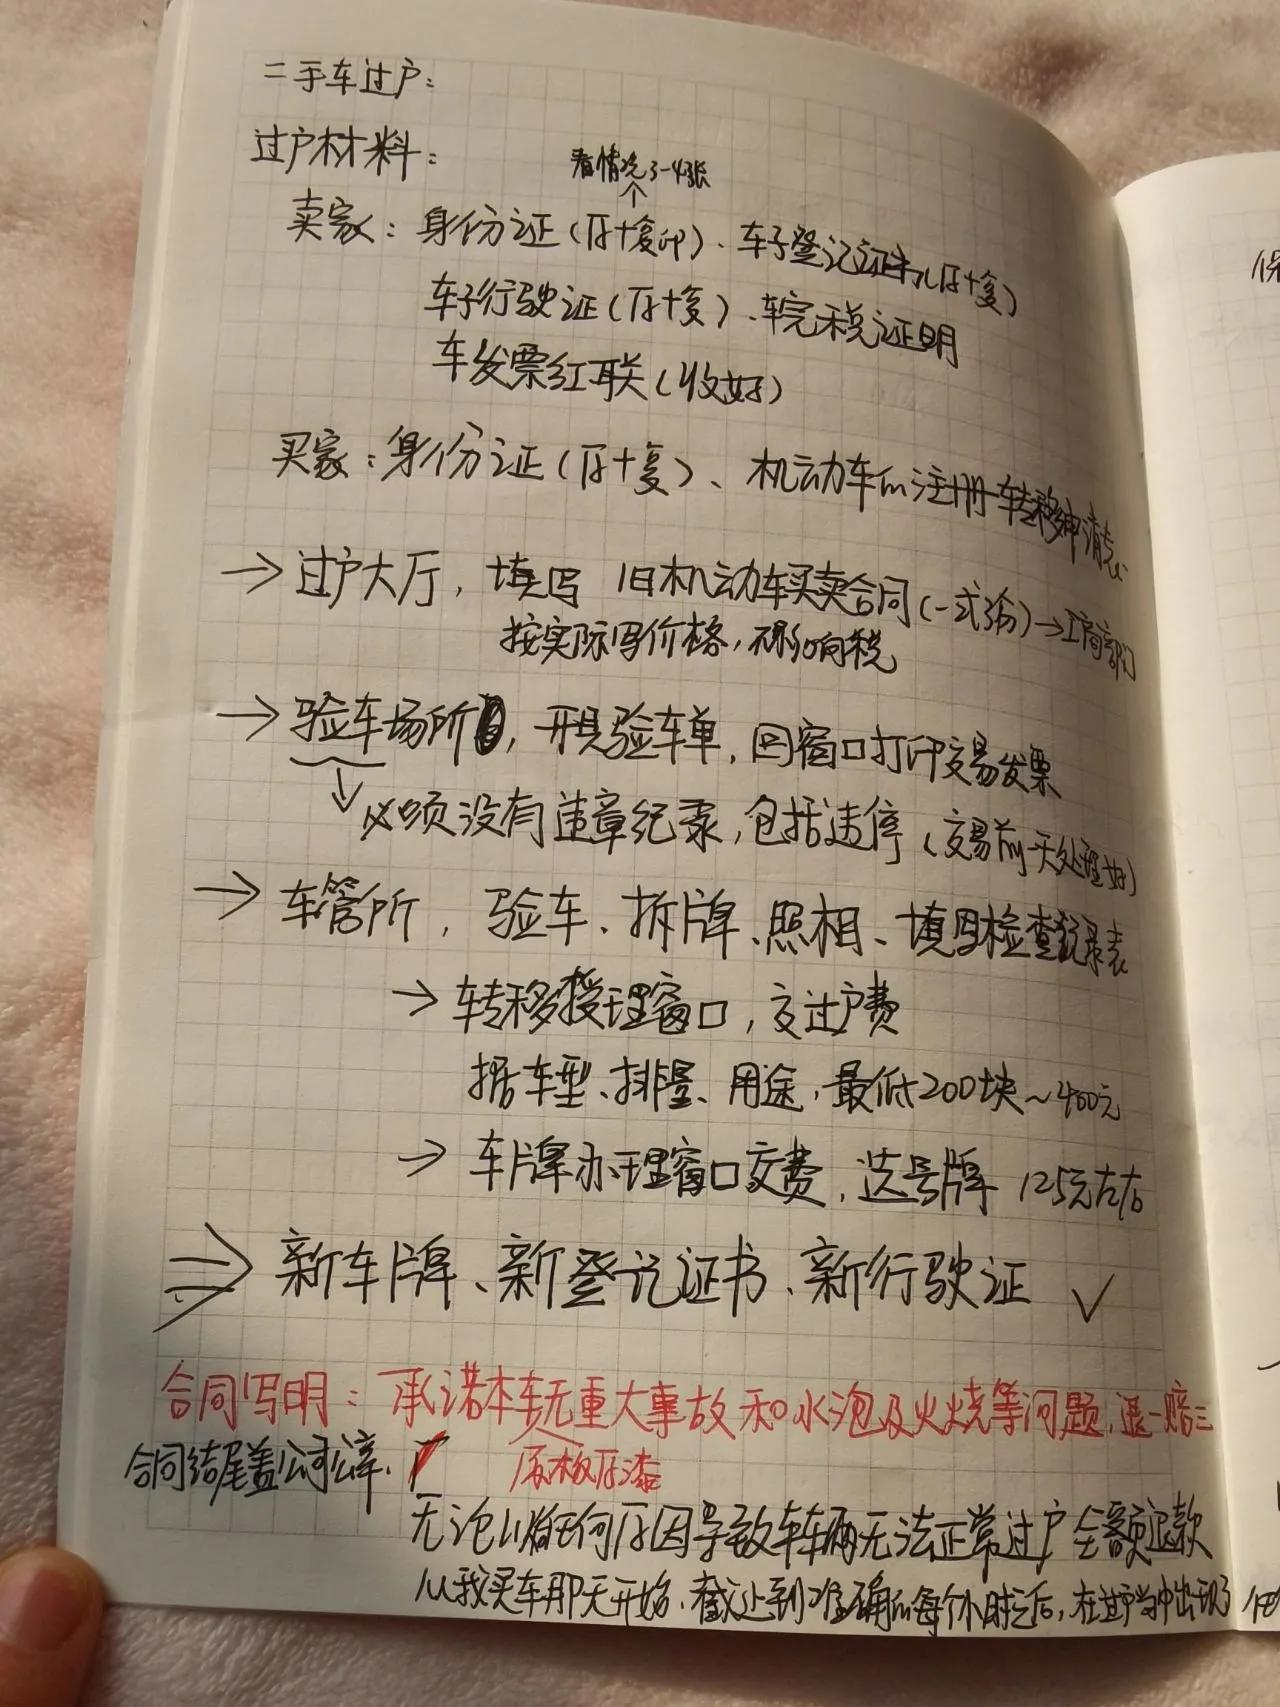 二手车过户:
过户材料:
看情况3-4张
卖家: 身份证(原+复印)、车子登记证书(原+复)
车子行驶证(原+复)、车完税证明
车发票红联(收好)
买家: 身份证(原+复)、机动车的注册转移申请表
→ 过户大厅, 填写 旧机动车买卖合同(一式3份)→工商部门
按实际写价格, 不影响税
→ 验车场所, 开具验车单, 回窗口打印交易发票
必须没有违章纪录, 包括违停(交易前一天处理好)
→ 车管所, 验车、拆牌、照相、填写检查记录表
→ 转移受理窗口, 交过户费
据车型、排量、用途, 最低200块~400元
→ 车牌办理窗口交费, 选号牌 125元左右
新车牌、新登记证书、新行驶证 ✓
合同写明: 承诺本车无重大事故和水泡及火烧等问题, 退一赔三
合同结尾盖公司公章、 原板原漆
无论任何原因导致车辆无法正常过户全额退款
从我买车那天开始, 截止到准确的每个小时之后, 在过户当中出现了
保